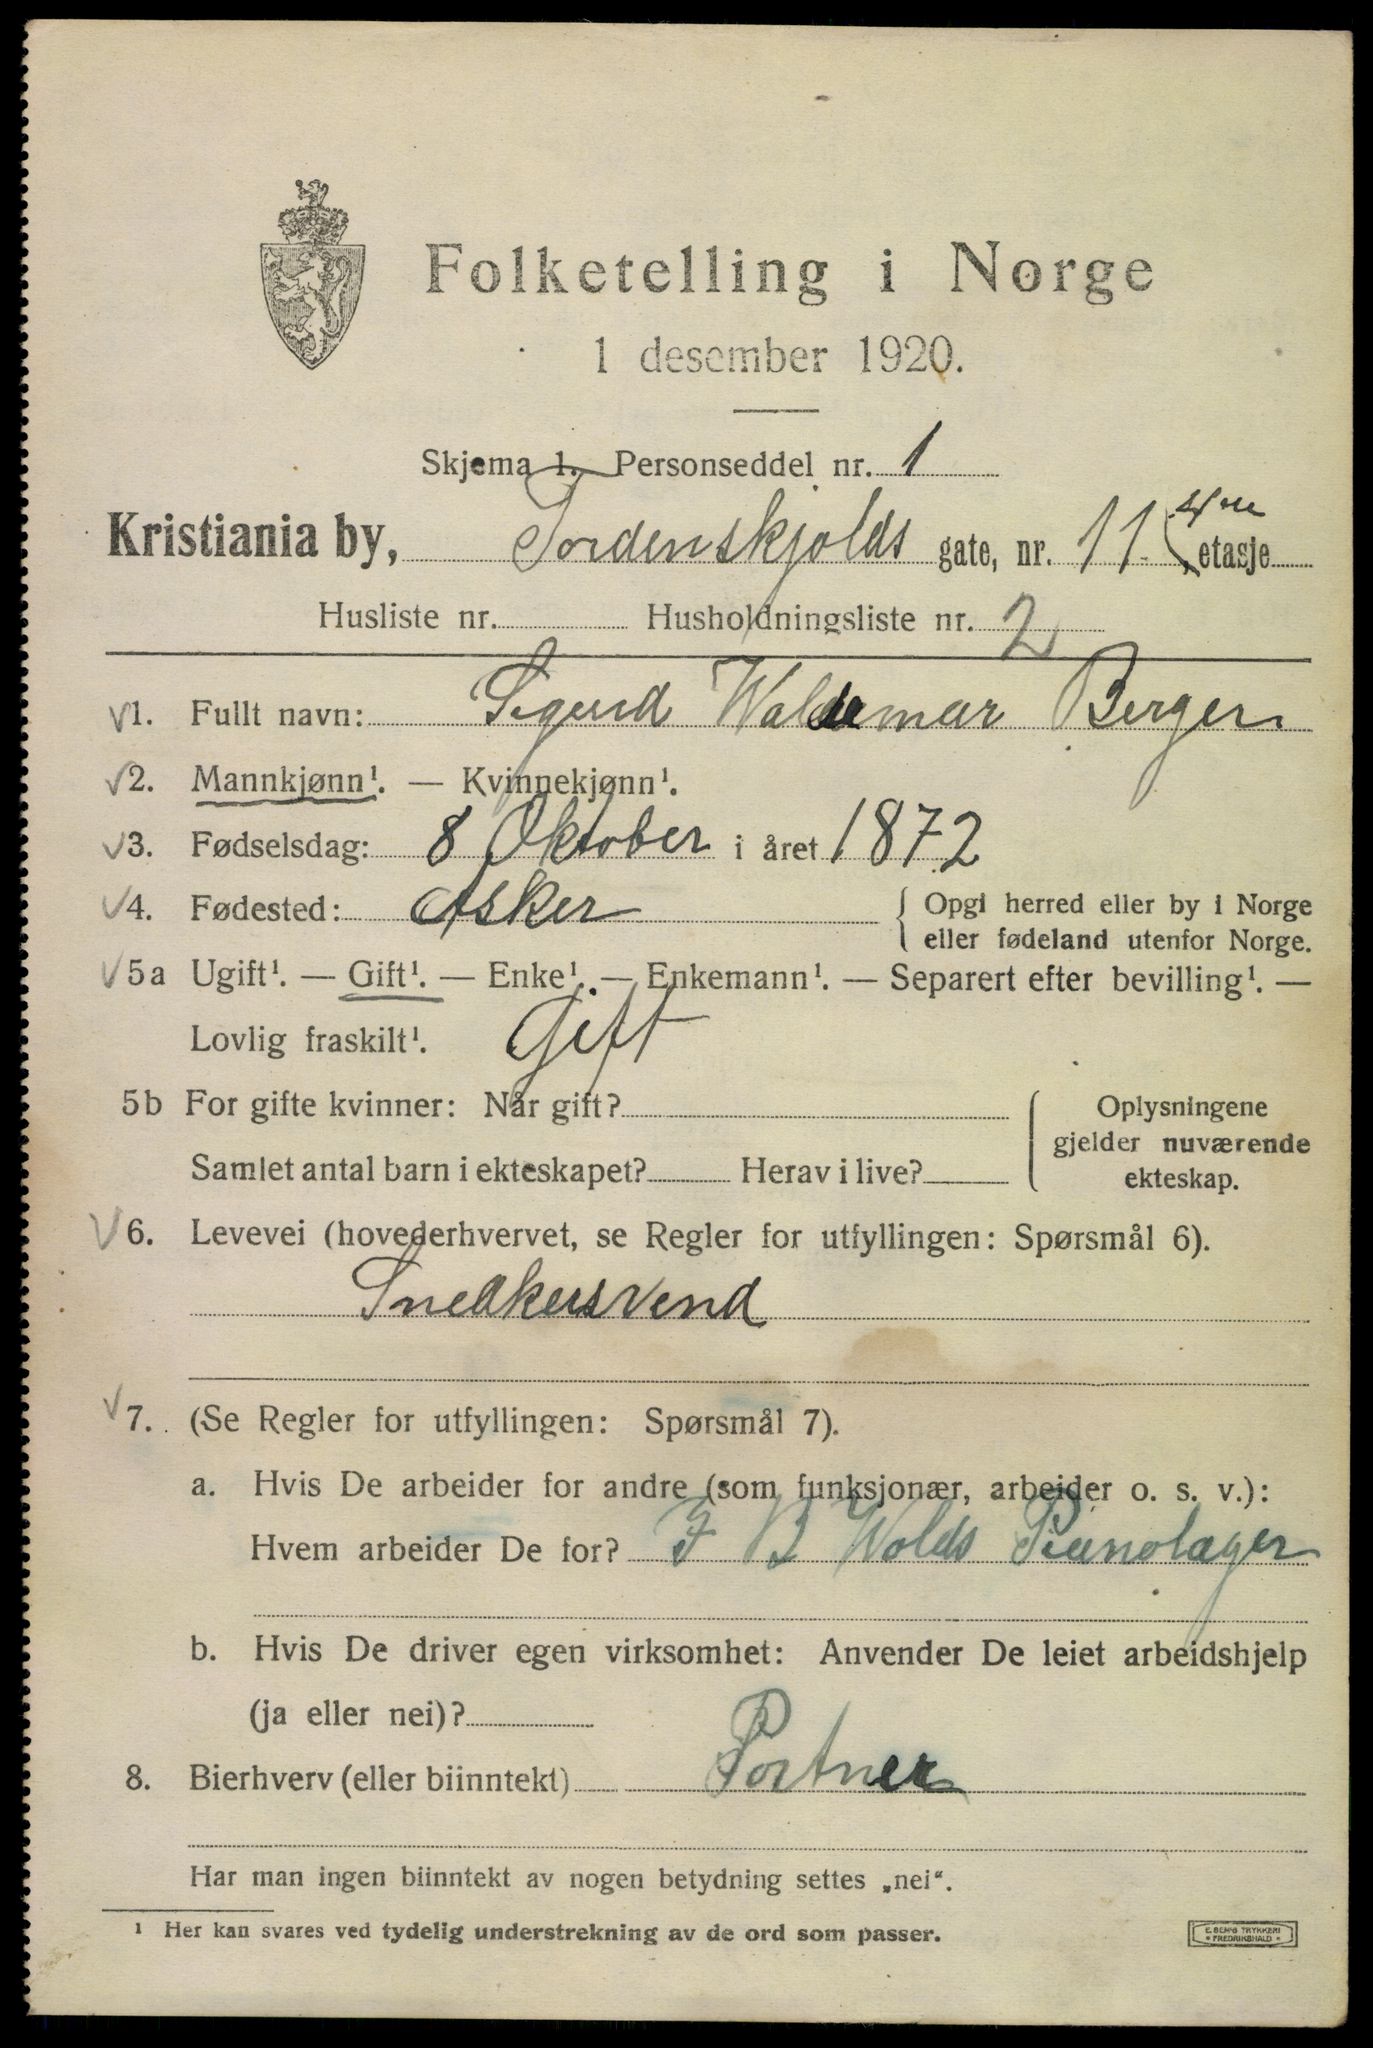 Folketelling i Norge
1 desember 1920.
Skjema 1. Personseddel nr. 1
Kristiania by, Tordenskjolds gate, nr. 11, 4de etasje
Husliste nr. Husholdningsliste nr. 2
1. Fullt navn: Sigurd Waldemar Berger
2. Mannkjønn¹. — Kvinnekjønn¹.
3. Fødselsdag: 8 Oktober i året 1872
4. Fødested: Asker { Opgi herred eller by i Norge
eller fødeland utenfor Norge.
5a Ugift¹. — Gift¹. — Enke¹. — Enkemann¹. — Separert efter bevilling¹. —
Lovlig fraskilt¹. Gift
5b For gifte kvinner: Når gift? { Oplysningene
gjelder nuværende
Samlet antal barn i ekteskapet? Herav i live? ekteskap.
6. Levevei (hovederhvervet, se Regler for utfyllingen: Spørsmål 6).
Snedkersvend
7. (Se Regler for utfyllingen: Spørsmål 7).
a. Hvis De arbeider for andre (som funksjonær, arbeider o. s. v.):
Hvem arbeider De for? F B Wolds Pianolager
b. Hvis De driver egen virksomhet: Anvender De leiet arbeidshjelp
(ja eller nei)?
8. Bierhverv (eller biinntekt) Portner
Har man ingen biinntekt av nogen betydning settes „nei“.
¹ Her kan svares ved tydelig understrekning av de ord som passer.
E. SEM'S TRYKKERI
* FREDRIKSHALD *